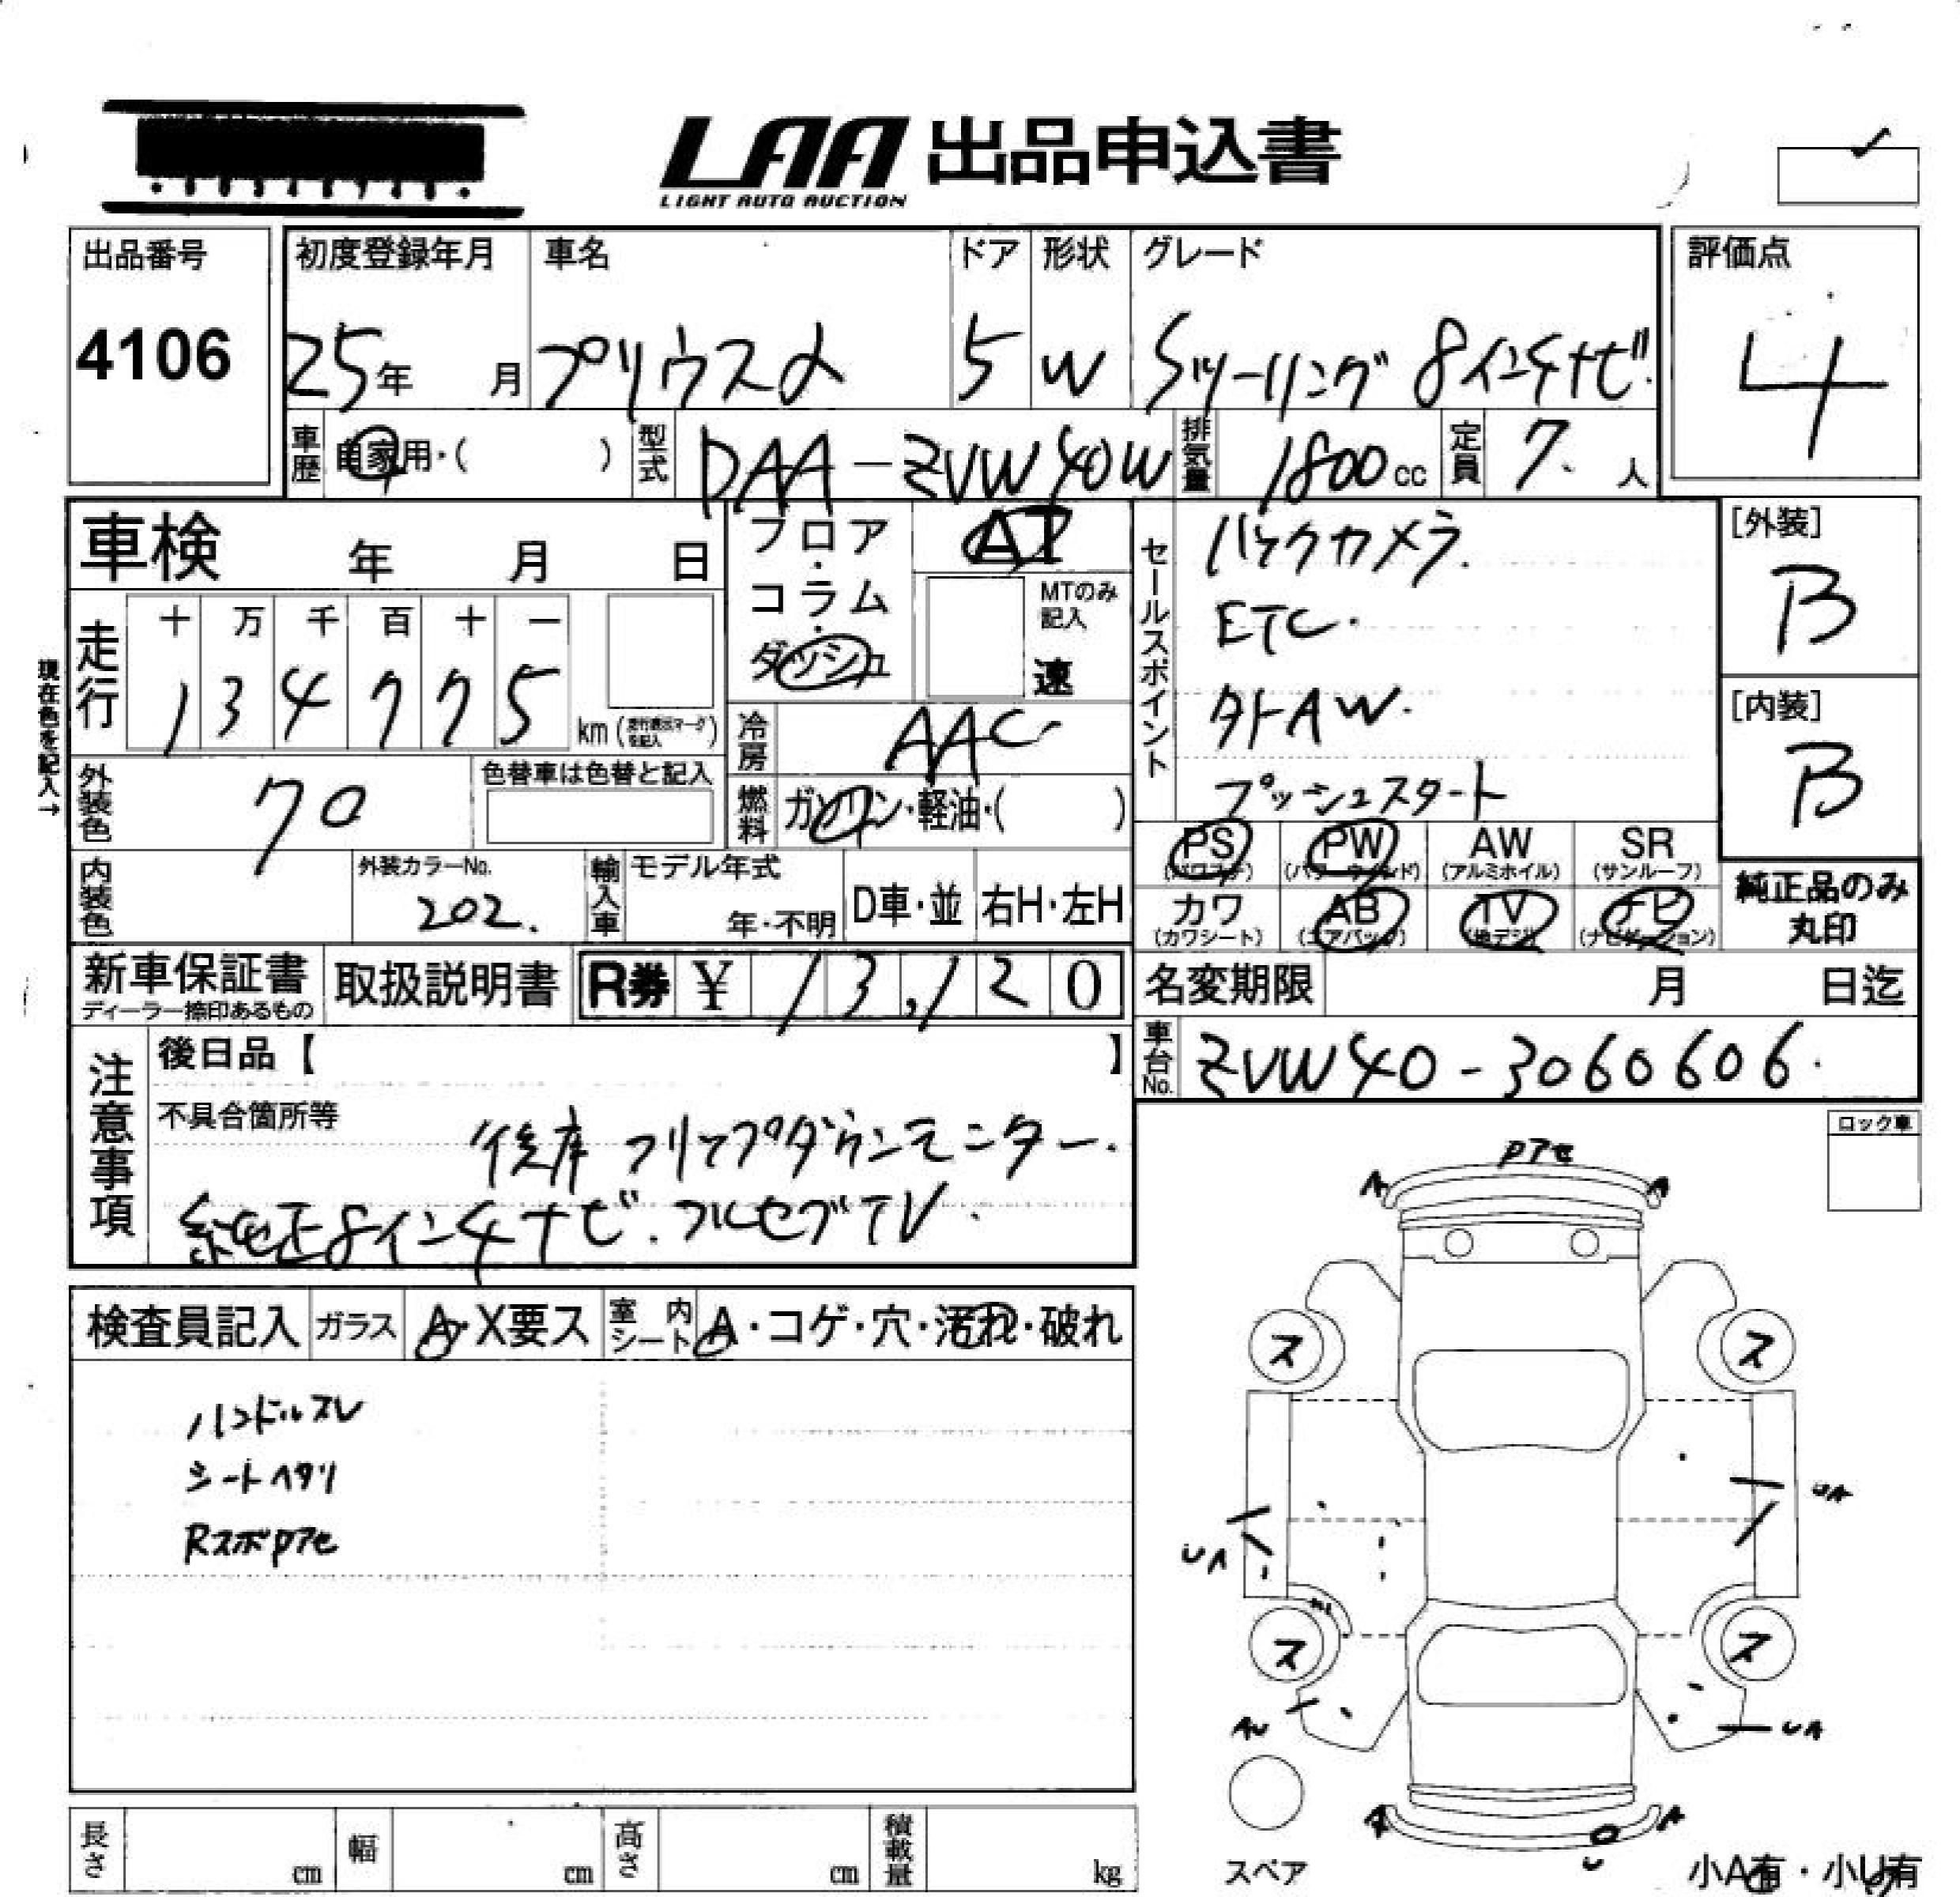 LAA 出品申込書
LIGHT AUTO AUCTION
出品番号
4106
初度登録年月 車名 ドア 形状 グレード
25年 月 プリウスα 5 W Sツーリング 8インチナビ
評価点
4
車歴 自家用・( ) 型式 DAA-ZVW40W 排気量 1800cc 定員 7人
車検 年 月 日
走行 十 万 千 百 十 一
1 3 4 7 7 5 km
現在色を記入→
フロア・コラム・ダッシュ
AT
MTのみ記入
速
冷房 AAC
燃料 ガソリン・軽油・( )
セールスポイント
バックカメラ.
ETC.
外AW.
プッシュスタート
[外装]
B
[内装]
B
外装色 70
色替車は色替と記入
内装色
外装カラーNo.
202.
輸入車 モデル年式
年・不明 D車・並 右H・左H
PS (パワステ) PW (パワーウィンド) AW (アルミホイル) SR (サンルーフ)
カワ (カワシート) AB (エアバッグ) TV (地デジ) ナビ (ナビゲーション)
純正品のみ
丸印
新車保証書
ディーラー捺印あるもの
取扱説明書 R券 ¥ 13,120
名変期限 月 日迄
車台No. ZVW40-3060606.
注意事項
後日品【 】
不具合箇所等
後席 フリップダウンモニター.
純正8インチナビ. フルセグTV.
ロック車
検査員記入 ガラス A・X要ス 室内シート A・コゲ・穴・汚れ・破れ
ハンドルスレ
シートヘタリ
Rスポアセ
Pアセ
A A
ス ス
UA
UA
ス ス
AU UA
A A
U
スペア
小A有・小U有
長さ cm 幅 cm 高さ cm 積載量 kg